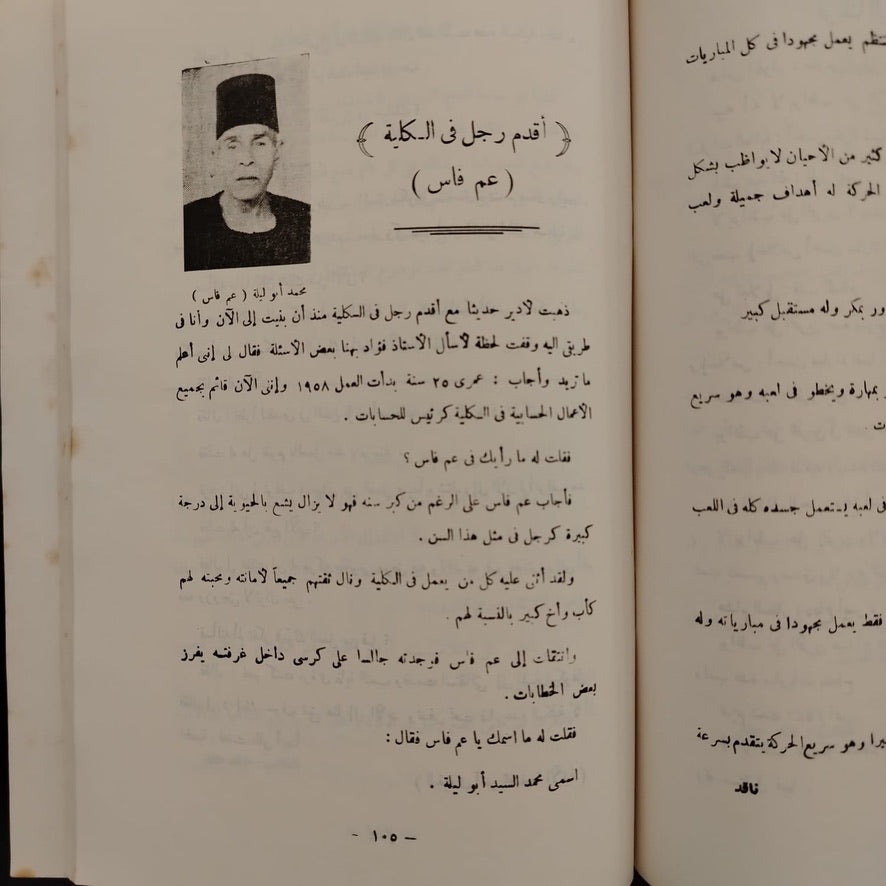 ﴿ أقدم رجل فى الكلية ﴾
( عم فاس )
محمد أبو ليلة ( عم فاس )
ذهبت لأدير حديثا مع أقدم رجل فى الكلية منذ أن بنيت إلى الآن وأنا فى
طريقى اليه وقفت لحظة لأسأل الأستاذ فؤاد بهنا بعض الأسئلة فقال لى إننى أعلم
ما تريد وأجاب : عمرى ٢٥ سنة بدأت العمل ١٩٥٨ وإننى الآن قائم بجميع
الأعمال الحسابية فى الكلية كرئيس للحسابات .
فقلت له ما رأيك فى عم فاس ؟
فأجاب عم فاس على الرغم من كبر سنه فهو لا يزال يشع بالحيوية إلى درجة
كبيرة كرجل فى مثل هذا السن .
ولقد أثنى عليه كل من يعمل فى الكلية وقال ثقتهم جميعاً لأمانته ومحبته لهم
كأب وأخ كبير بالنسبة لهم .
وانتقلت إلى عم فاس فوجدته جالسا على كرسى داخل غرفته يفرز
بعض الخطابات .
فقلت له ما اسمك يا عم فاس فقال :
اسمى محمد السيد أبو ليلة .
— ١٠٥ —
نتظم يعمل مجهودا فى كل المباريات
كثير من الأحيان لا يواظب بشكل
الحركة له أهداف جميلة ولعب
ور بمكر وله مستقبل كبير
بمهارة ويخطو فى لعبه وهو سريع
ات .
فى لعبه يستعمل جسده كله فى اللعب
فقط يعمل مجهودا فى مبارياته وله
يرا وهو سريع الحركة يتقدم بسرعة
ناقد